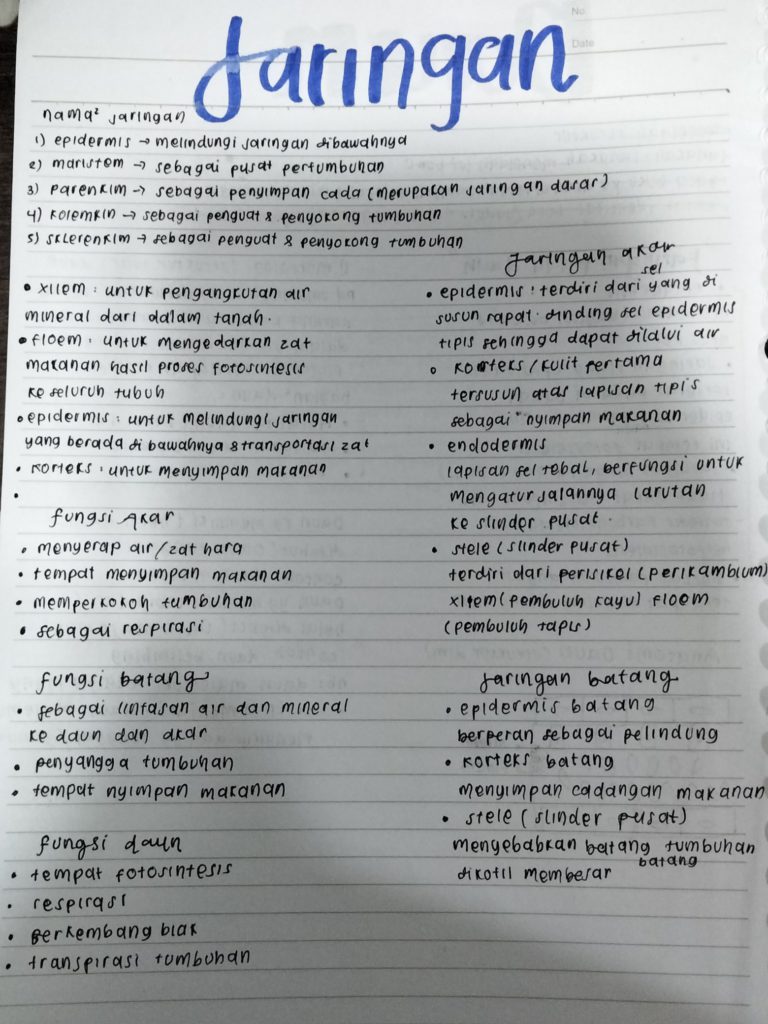 No
Date
Jaringan
nama² jaringan
1) epidermis → melindungi jaringan dibawahnya
2) maristem → sebagai pusat pertumbuhan
3) parenkim → sebagai penyimpan cada (merupakan jaringan dasar)
4) kolemkin → sebagai penguat & penyokong tumbuhan
5) sklerenkim → sebagai penguat & penyokong tumbuhan
• xilem : untuk pengangkutan air
mineral dari dalam tanah.
• floem : untuk mengedarkan zat
makanan hasil proses fotosintesis
ke seluruh tubuh
• epidermis : untuk melindungi jaringan
yang berada di bawahnya & transportasi zat
• korteks : untuk menyimpan makanan
•
fungsi akar
• menyerap air/zat hara
• tempat menyimpan makanan
• memperkokoh tumbuhan
• sebagai respirasi
fungsi batang
• sebagai lintasan air dan mineral
ke daun dan akar
• penyangga tumbuhan
• tempat nyimpan makanan
fungsi daun
• tempat fotosintesis
• respirasi
• berkembang biak
• transpirasi tumbuhan
jaringan akar
• epidermis : terdiri dari sel yang di
susun rapat. dinding sel epidermis
tipis sehingga dapat dilalui air
• korteks / kulit pertama
tersusun atas lapisan tipis
sebagai nyimpan makanan
• endodermis
lapisan sel tebal, berfungsi untuk
mengatur jalannya larutan
ke slinder pusat.
• stele (slinder pusat)
terdiri dari perisikel (perikambium)
xilem (pembuluh kayu) floem
(pembuluh tapis)
jaringan batang
• epidermis batang
berperan sebagai pelindung
• korteks batang
menyimpan cadangan makanan
• stele (slinder pusat)
menyebabkan batang tumbuhan
dikotil membesar batang